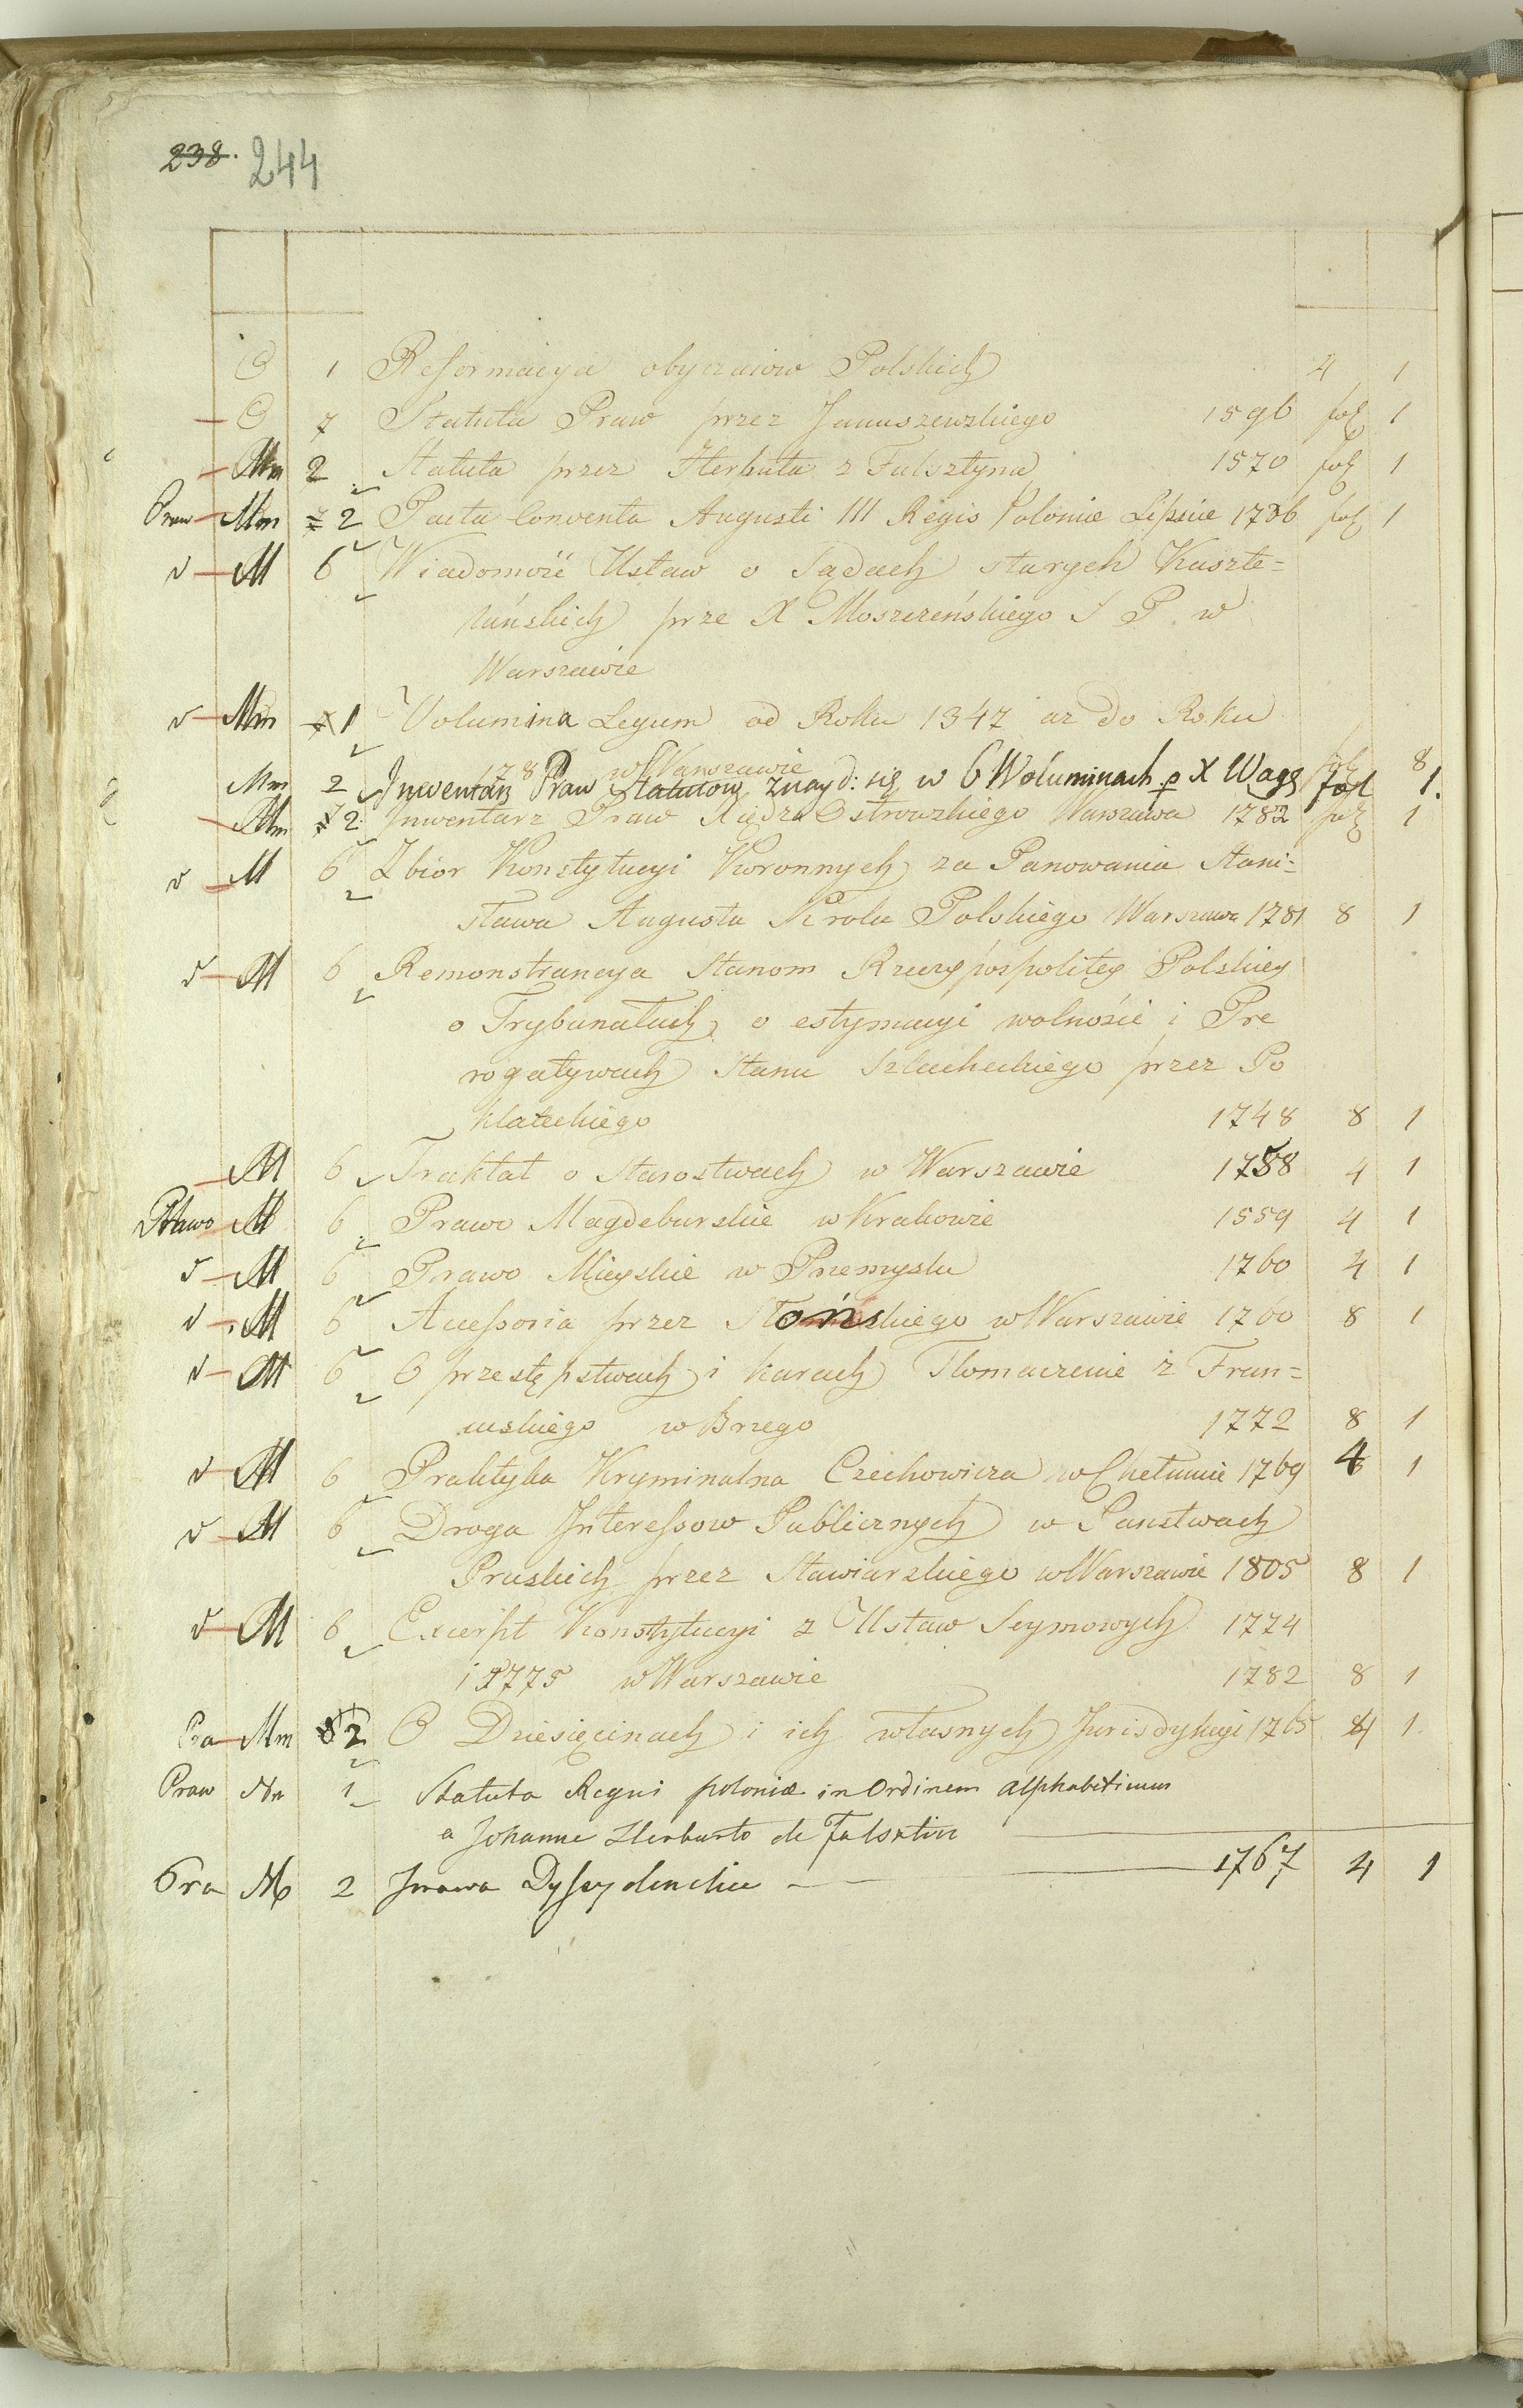 238. 244
O 1 Reformacya obyczaiow Polskich 4 1
O 7 Statuta Praw przez Januszewskiego 1596 fol 1
Mm 2 Statuta przez Herbuta z Fulsztyna 1570 fol 1
Praw Mm 2 Pacta Conventa Augusti III Regis Poloniæ Lipsiæ 1736 fol 1
M 6 Wiadomość Ustaw o Sądach starych Kaszte=
lańskich prze X Moszczeńskiego S P. w
Warszawie
Mm 1 Volumina Legum od Roku 1347 az do Roku
178 w Warszawie fol 8
Mm 2 Inwentarz Praw Statutow znayd: się w 6 Woluminach p X Wagę fol 1.
Mm 2 Inwentarz Praw Xiędza Ostrowskiego Warszawa 1782 fol 1
M 6 Zbior Konstytucyi Koronnych za Panowania Stani=
sława Augusta Krola Polskiego Warszawa 1781 8 1
M 6 Remonstrancya Stanom Rzeczypospolitey Polskiey
o Trybunałach, o estymacyi wolności i Pre
rogatywach Stanu Szlacheckiego przez Po
klateckiego 1748 8 1
M 6 Traktat o Starostwach w Warszawie 1758 4 1
Prawo M 6 Prawo Magdeburskie w Krakowie 1559 4 1
M 6 Prawo Mieyskie w Przemyslu 1760 4 1
M 6 Accessoria przez Słońskiego w Warszawie 1760 8 1
M 6 O przestępstwach i karach Tlomaczenie z Fran=
cuskiego w Brzegu 1772 8 1
M 6 Praktyka Kryminalna Czechowicza w Chełmnie 1769 4 1
M 6 Droga Interessow Publicznych w Panstwach
Pruskich przez Stawiarskiego w Warszawie 1805 8 1
M 6 Excerpt Konstytucyi z Ustaw Seymowych 1774
i 1775 w Warszawie 1782 8 1
Pra Mm 2 O Dziesięcinach i ich własnych Jurisdykcyi 1765 4 1.
Praw Mn 1 Statuta Regni poloniæ in Ordinem alphabeticum
a Johanne Herburto de Fulsztin
Pra M 2 Prawa Dyssydenckie 1767 4 1